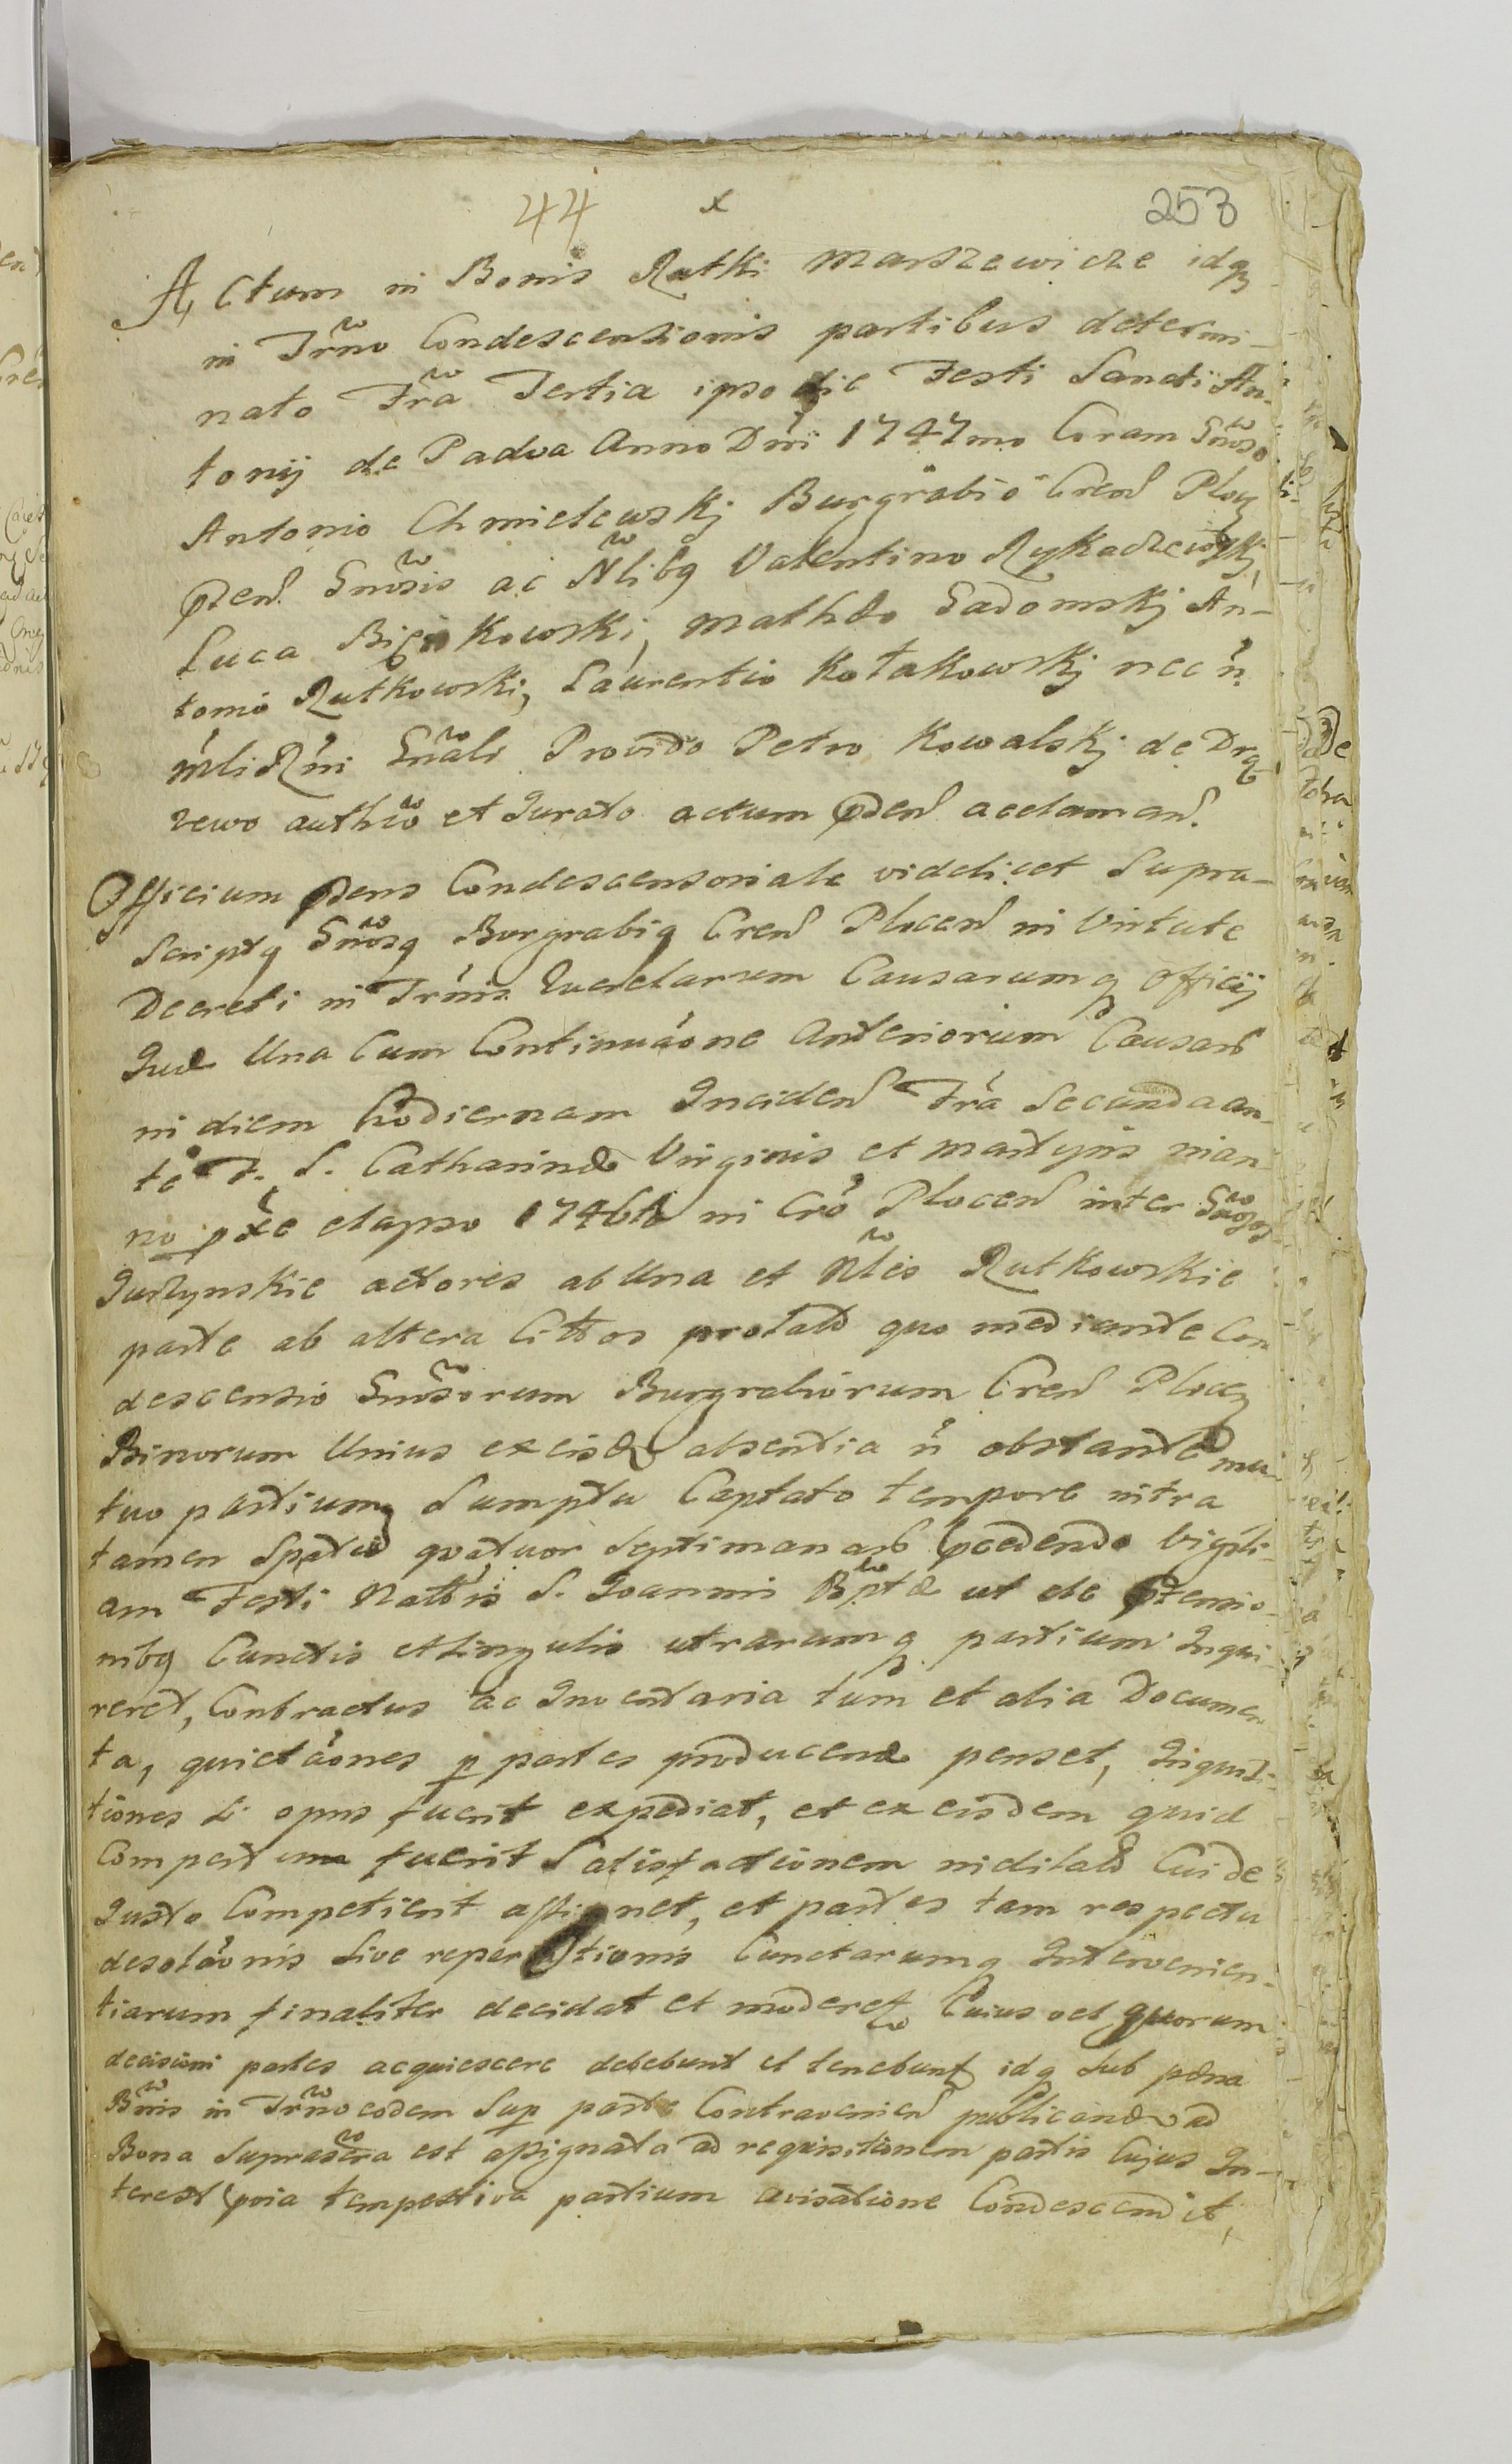 44 x 253
Actum in Bonis Rutki Marszewicze idq3
in Trno Condescensionis partibus determi-
nato Fra Tertia ipso die Festi Sancti An-
tonij de Padva Anno Dni 1747mo Coram Gnoso
Antonio Chmielewskj Burgrabio Cren Ploc
pden. Gnosis ac Nlibq Valentino Rykaczewskj,
Luca Kowski, Mathæo Sadomskj An-
tonio Rutkowski, Laurentio Kołakowskj nec n
mliRni Gnali Provido Petro Kowalskj de Drą
zewo authco et Jurato actum pden acclaman.
Officium pdens Condescensoriale videlicet Supra-
scriptq Gnosq Burgrabiq Cren Plocen in Virtute
Decreti in Trnis Querelarum Causarumq Officij
Una Cum Continuaone Anteriorum Causarū
in diem hodiernam Inciden Fra Secunda an-
te F. S. Catharinæ Virginis et Martyris in an-
no pxe elapso 1746to in Cro Plocen inter Gnosos
actores ab Una et Nles Rutkowskie
parte ab altera Cittos prolato quo mediante Con
descensio Gnosorum Burgrabiorum Cren Plocen
Binorum Unius ex eisdē absentia n obstante mu-
tuo partiumq Sumptu Captato tempore intra
tamen Spatiū quatuor Septimanarū pcedendo Vigili-
am Festi Nattis S. Joannis Bptæ ut de ptensio-
nibq Cunctis et Singulis utrarumq partium Inqui-
reret, Contractus ac Inventaria tum et alia Documen
ta, quietaones p partes producenda penset, Inquisi-
tiones Si opus fuerit expediat, et ex eisdem quid
Compertum fuerit Satisfactionem Cui de
Justo Competient assignet, et partes tam respectu
desolaonis Sive reper tionis Cunctarumq Intervenien-
tiarum finaliter decidat et moderet Cuius vel quorum
decisioni partes acquiescere debebunt et tenebunt idq Sub pæna
Bnnis in Trno eodem Sup parte Contravenien publicanda ad
Bona Suprascra est assignata ad requisitionem partis Cujus In-
terest pvia tempestiva partium avisatione Condescendit,